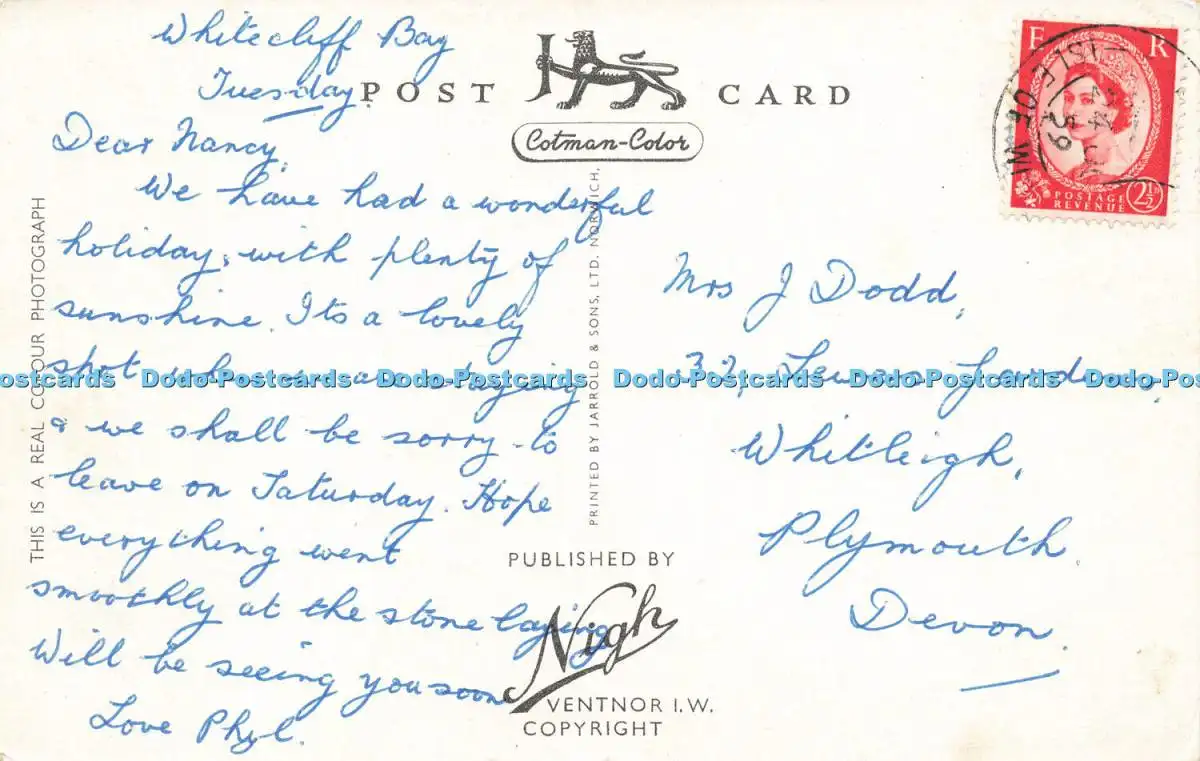 Whitecliff Bay
Tuesday
POST CARD
Cotman-Color
Dear Nancy,
We have had a wonderful
holiday, with plenty of
sunshine. Its a lovely
spot where we are staying
& we shall be sorry to
leave on Saturday. Hope
everything went
smoothly at the stone laying
Will be seeing you soon
Love Phyl.
THIS IS A REAL COLOUR PHOTOGRAPH
PRINTED BY JARROLD & SONS, LTD. NORWICH.
PUBLISHED BY
Nigh
VENTNOR I.W.
COPYRIGHT
E R
POSTAGE
REVENUE
2½
ISLE OF W
59
Mrs J Dodd,
32, Gardens,
Whitleigh,
Plymouth
Devon
Postcards Dodo-Postcards Dodo-Postcards Dodo-Postcards Dodo-Postcards Dodo-Pos